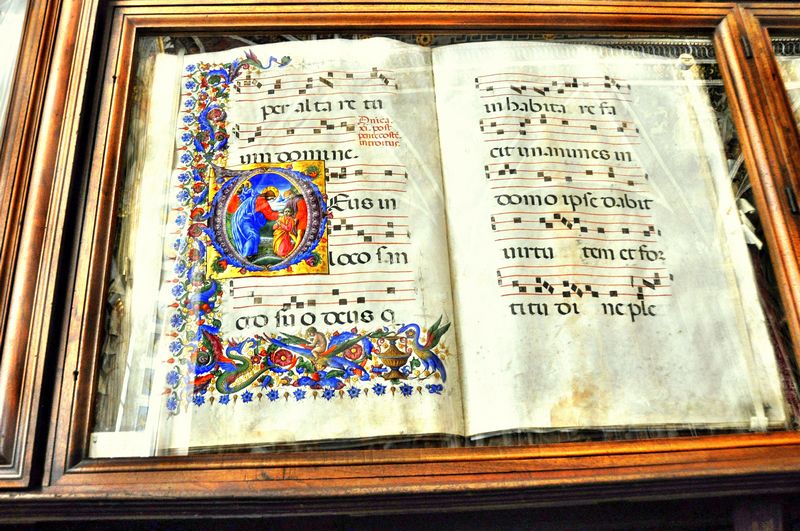 per alta re tu
um domine.
Dnica.
xi. post
pentecoste.
introitus.
DEus in
loco san
cto su o deus q
in habita re fa
cit unanimes in
domo ipse dabit
uirtu tem et for
titu di ne ple